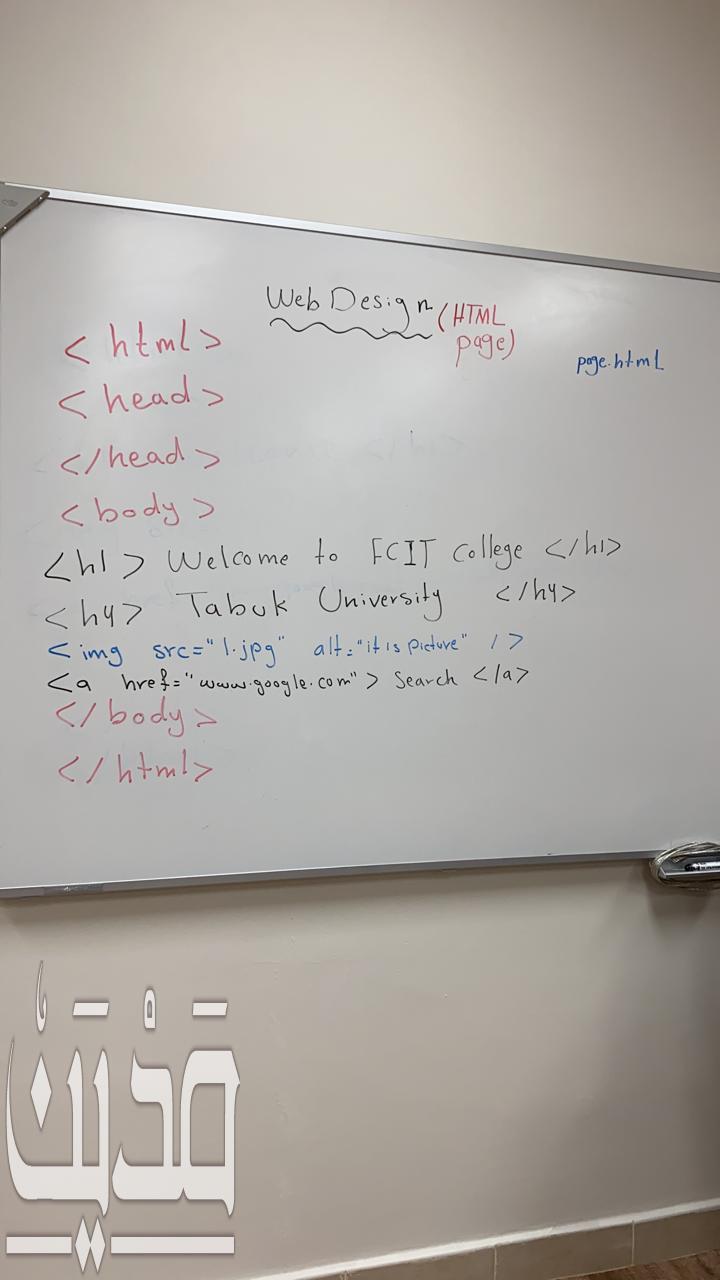 Web Design (HTML
page)
page.html
< html >
< head >
</head >
< body >
<h1 > Welcome to FCIT College </h1>
<h4> Tabuk University </h4>
<img src="1.jpg" alt="it is picture" />
<a href="www.google.com"> Search </a>
</ body >
</ html>
مَدْيَن